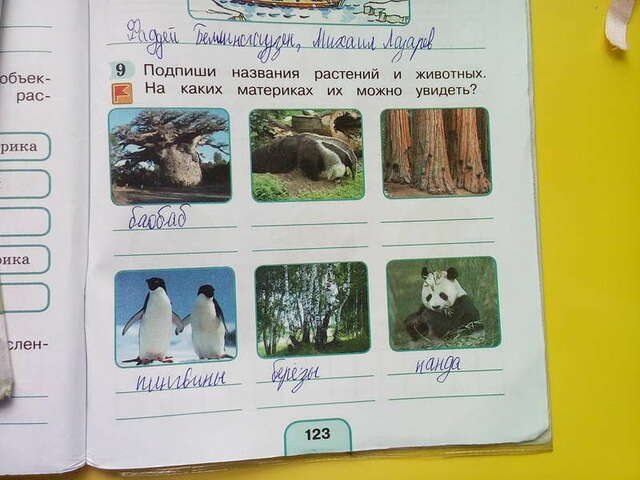 Фаддей Беллинсгаузен, Михаил Лазарев
9 Подпиши названия растений и животных.
На каких материках их можно увидеть?
баобаб
пингвины
березы
панда
123
объек-
рас-
рика
рика
слен-